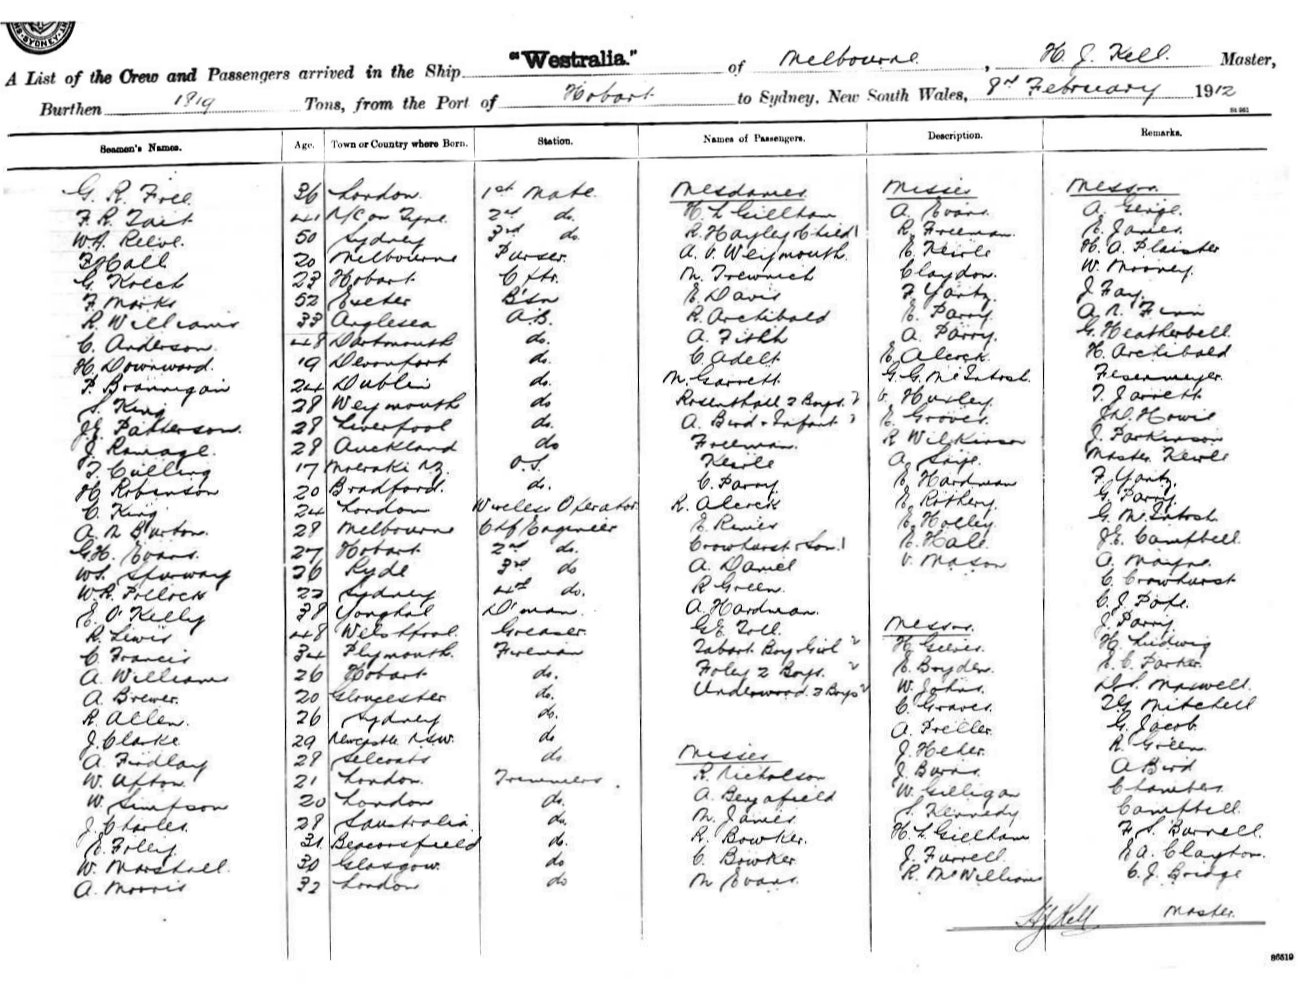 SYDNEY
"Westralia."
A List of the Crew and Passengers arrived in the Ship "Westralia." of Melbourne, H. J. Kell. Master,
Burthen 1819 Tons, from the Port of Hobart to Sydney, New South Wales, 8th February 1912
St 961
Seamen's Names. Age. Town or Country where Born. Station. Names of Passengers. Description. Remarks.
G. R. Free 36 London. 1st Mate.
F. R. Tait 41 N/C on Tyne. 2nd do.
W. A. Reeve. 50 Sydney 3rd do.
Hall 20 Melbourne Purser.
G. 23 Hobart C
F. Marks 52 Exeter B'sn
R. Williams 33 Anglesea A.B.
C. Anderson. 48 Dartmouth do.
H. Downward. 19 Devonport do.
P. Brannigan 24 Dublin do.
S. King 28 Weymouth do
J. Patterson. 28 Liverpool do.
J. Ramage. 28 Auckland do
T. Culling 17 Moeraki N.Z. O.S.
H. Robinson 20 Bradford. do.
C. King 24 London Wireless Operator
A. N. Burton. 28 Melbourne Chf Engineer
G. H. Evans. 27 Hobart 2nd do.
W. S. Spurway 26 Ryde 3rd do
W. R. Pollock 22 Sydney 4th do.
E. O'Kelly 38 Youghal D'man.
R. Lewis 48 Welshpool. Greaser.
C. Francis 34 Plymouth. Fireman
A. Williams 26 Hobart do.
A. Brewer. 20 Gloucester do.
R. Allen. 26 Sydney do.
J. Clarke 29 Newcastle N.S.W. do
A. Findlay 28 do
W. Upton. 21 London. Trimmers.
W. Simpson 20 London do.
J. Charles. 28 S Australia. do.
E. Foley. 31 Beaconsfield do.
W. Marshall. 30 Glasgow. do
A. Morris 32 London do
Mesdames
H. L. Gillham
R. Hayley & Child 1
A. V. Weymouth.
M. Trewnich
E. Davis
R. Archibald
A. Fitch
C. Adelt
M. Garrett
Rosenthall 2 Boys. 2
A. Bird & Infant 1
Freeman.
Keirle
C. Parry
R. Alcock
E. Renies
Crowhurst & Son. 1
A. Daniel
R. Green.
A. Hardman.
G. E. Toll.
Tabart Boy & Girl 2
Foley 2 Boys. 2
Underwood. 2 Boys 2
Misses
R. Nicholson
A. Benafield
M. James
R. Bowker.
C. Bowker
M. Evans.
Misses
A. Evans.
R. Freeman.
E. Keirle
Claydon.
F. Yantz.
E. Parry.
A. Parry.
E. Alcock
G. G. McIntosh.
V. Huxley
E. Groves.
R. Wilkinson
A.
E. Hardman
E. Rothery
E. Holley
E. Hall.
V. Mason
Messrs.
H. Geeves.
E. Boyden.
W. Johns.
C. Graves.
A. Preller.
J. Heher.
J. Burns.
W. Gilligan
S. Kennedy
H. L. Gillham
J. Farrell.
R. McWilliams
Messrs.
A. George.
E. James.
H. A. Plaister
W. Mooney.
J. Fay.
A. N. Finn
G. Heatherbell
H. Archibald
Fesenmeyer.
T. Jarrett
Howie
J. Parkinson
Master Keirle
F. Yantz.
G. Parry.
G. McIntosh
J. E. Campbell
A. Mayne.
C. Crowhurst
C. J. Pope.
J. Parry
H. Ludwig
E. C. Parker.
D. S. Maxwell.
Mitchell
G. Jacob.
R. Green
A Bird
Chambers
Campbell.
F. S. Burrell.
E. A. Clayton.
C. J. Bridge
H J Kell Master.
86519